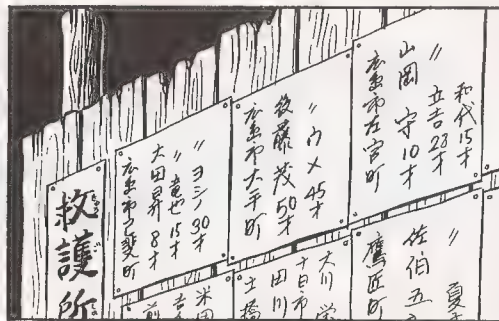 和代15才
〃 立吉23才
山岡 守10才
広島市左官町
〃 ウメ 45才
後藤茂50才
広島市大手町
〃 ヨシノ 30才
〃 竜也15才
大田昇8才
広島市己斐町
〃 夏
佐伯五
鷹匠町
大川 栄
十日市
田川
土橋
米田
前
救護所